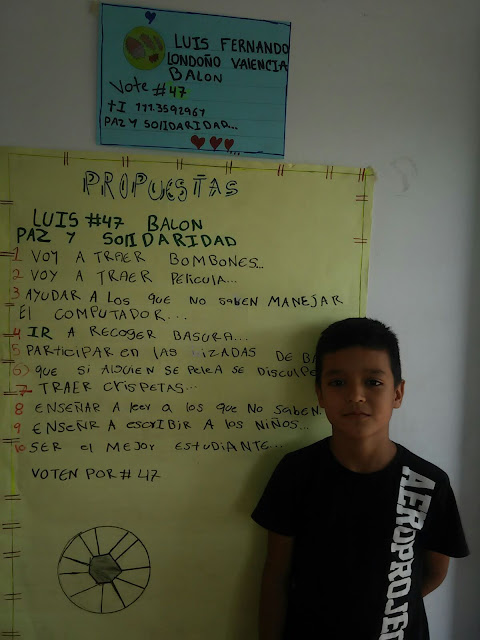 LUIS FERNANDO
LONDOÑO VALENCIA
BALON
Vote #47
TI 111.3592967
PAZ Y SOlIDARIDAD...
PROPUESTAS
LUIS #47 BALON
PAZ Y SOlIDARIDAD
1 VOY A TRAER BOMBONES...
2 VOY A TRAER PELICULA...
3 AYUDAR A LOS QUE NO SABEN MANEJAR
El COMPUTADOR...
4 IR A RECOGER BASURA...
5 PARTICIPAR EN LAS IZADAS DE
6) QUE SI AlGUIEN SE PELEA SE
7 TRAER CRISPETAS...
8 ENSEÑAR A leer A lOS QUE NO SABEN.
9 ENSEÑR A escRIBIR A lOS NIÑOS...
10 SER el MEJOR ESTUDIANTE...
VOTEN POR # 47